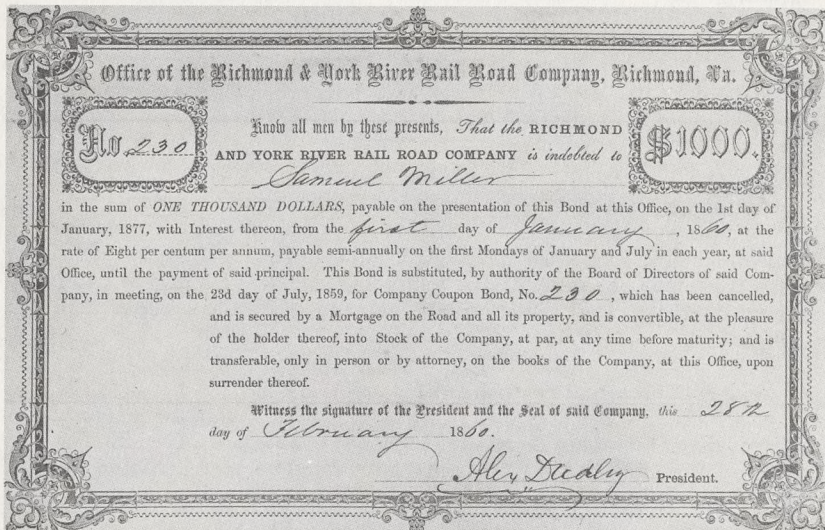 Office of the Richmond & York River Rail Road Company, Richmond, Va.
No 230
Know all men by these presents, That the RICHMOND
AND YORK RIVER RAIL ROAD COMPANY is indebted to
Samuel Miller
$1000.
in the sum of ONE THOUSAND DOLLARS, payable on the presentation of this Bond at this Office, on the 1st day of
January, 1877, with Interest thereon, from the first day of January, 1860, at the
rate of Eight per centum per annum, payable semi-annually on the first Mondays of January and July in each year, at said
Office, until the payment of said principal. This Bond is substituted, by authority of the Board of Directors of said Com-
pany, in meeting, on the 23d day of July, 1859, for Company Coupon Bond, No. 230, which has been cancelled,
and is secured by a Mortgage on the Road and all its property, and is convertible, at the pleasure
of the holder thereof, into Stock of the Company, at par, at any time before maturity; and is
transferable, only in person or by attorney, on the books of the Company, at this Office, upon
surrender thereof.
Witness the signature of the President and the Seal of said Company, this 28th
day of February 1860.
Alex Dudley President.